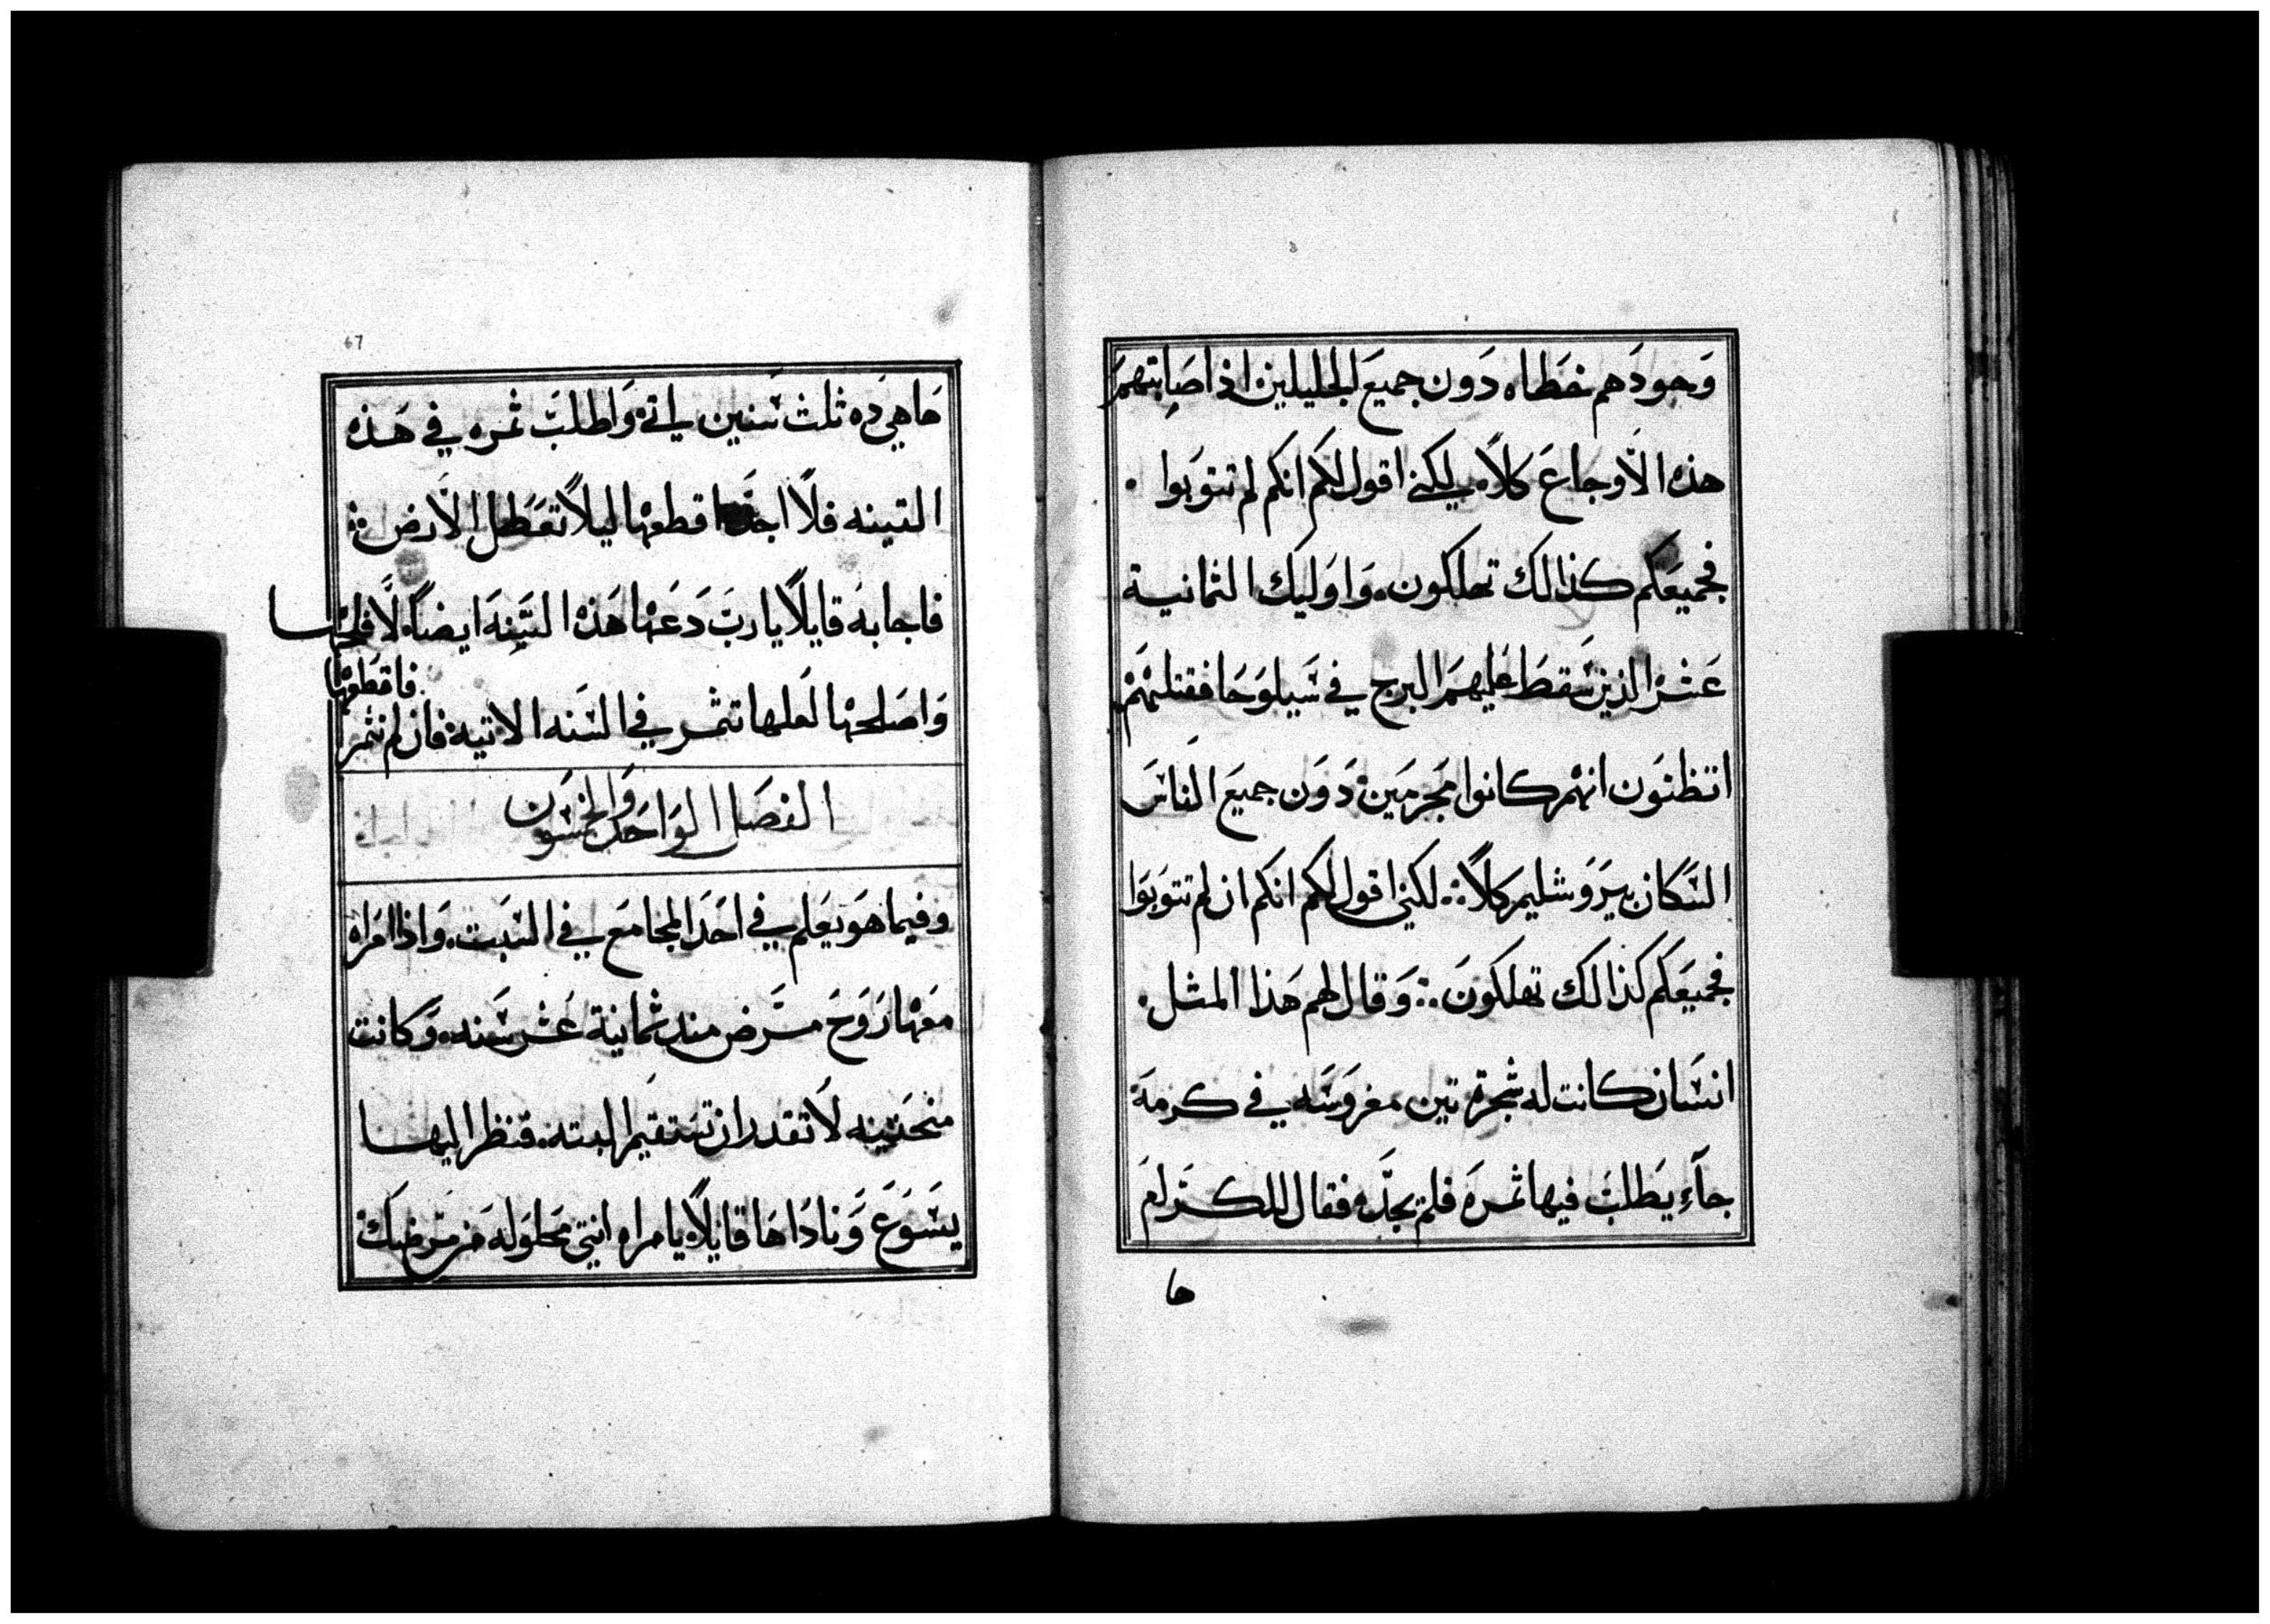 وجودهم خطاه دون جميع الجليلين اذ اصابتهم
هذه الاوجاع كلا. لكني اقول لكم انكم لم تتوبوا.
فجميعكم كذالك تهلكون. واوليك الثمانية
عشر الذين سقط عليهم البرج في سيلوحا فقتلهم
اتظنون انهم كانوا مجرمين دون جميع الناس
السكان بيروشليم كلا. لكني اقول لكم انكم ان لم تتوبوا
فجميعكم كذالك تهلكون. وقال لهم هذا المثل.
انسان كانت له شجرة تين مغروسه في كرمة
جآء يطلب فيها ثمره فلم يجده فقال للكرام
ها
67
ها هي ذه ثلث سنين ياتي واطلب ثمره في هذه
التينه فلا اجد اقطعها ليلا تعطل الارض
فاجابه قايلا يا رب دعها هذه التينه ايضا لافلحها
واصلحها لعلها تثمر في السنه الاتية فان لم تثمر
فاقطعها
الفصل الواحد والخمسون
وفيما هو يعلم في احد المجامع في السبت. واذا امراه
معها روح مرض منذ ثمانية عشر سنه. وكانت
منحنيه لا تقدر ان تستقيم البته. فنظر اليها
يسوع وناداها قايلا. يا امراه انتي محلوله من مرضك